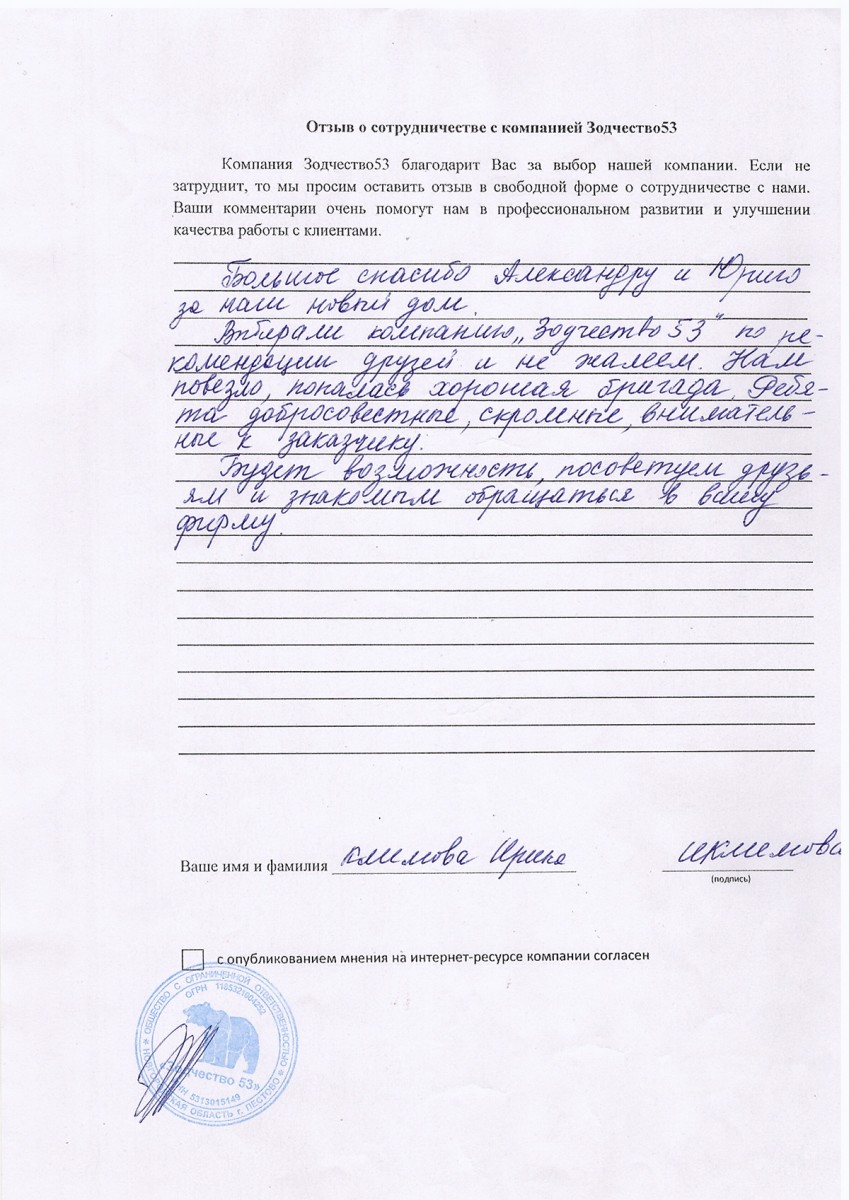 Отзыв о сотрудничестве с компанией Зодчество53
Компания Зодчество53 благодарит Вас за выбор нашей компании. Если не
затруднит, то мы просим оставить отзыв в свободной форме о сотрудничестве с нами.
Ваши комментарии очень помогут нам в профессиональном развитии и улучшении
качества работы с клиентами.
Большое спасибо Александру и Юрию
за наш новый дом.
Выбирали компанию „Зодчество 53" по ре-
комендации друзей и не жалеем. Нам
повезло, попалась хорошая бригада. Ребя-
та добросовестные, скромные, вниматель-
ные к заказчику.
Будет возможность, посоветуем друзь-
ям и знакомым обращаться в вашу
фирму.
Ваше имя и фамилия Климова Ирина ИКлимова
(подпись)
с опубликованием мнения на интернет-ресурсе компании согласен
ОБЩЕСТВО С ОГРАНИЧЕННОЙ ОТВЕТСТВЕННОСТЬЮ
ОГРН
«Зодчество 53»
ИНН 5313015149
НОВГОРОДСКАЯ ОБЛАСТЬ г. ПЕСТОВО